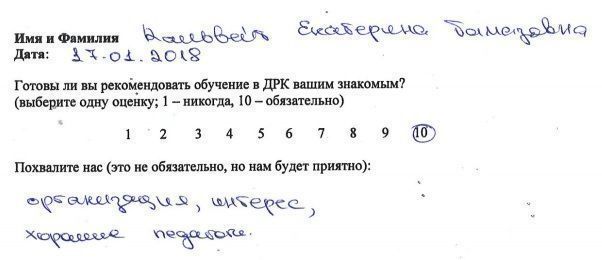 Имя и Фамилия Кальвейт Екатерина Тамазовна
Дата: 17.01.2018
Готовы ли вы рекомендовать обучение в ДРК вашим знакомым?
(выберите одну оценку; 1 – никогда, 10 – обязательно)
1 2 3 4 5 6 7 8 9 10
Похвалите нас (это не обязательно, но нам будет приятно):
организация, интерес,
хорошие педагоги.